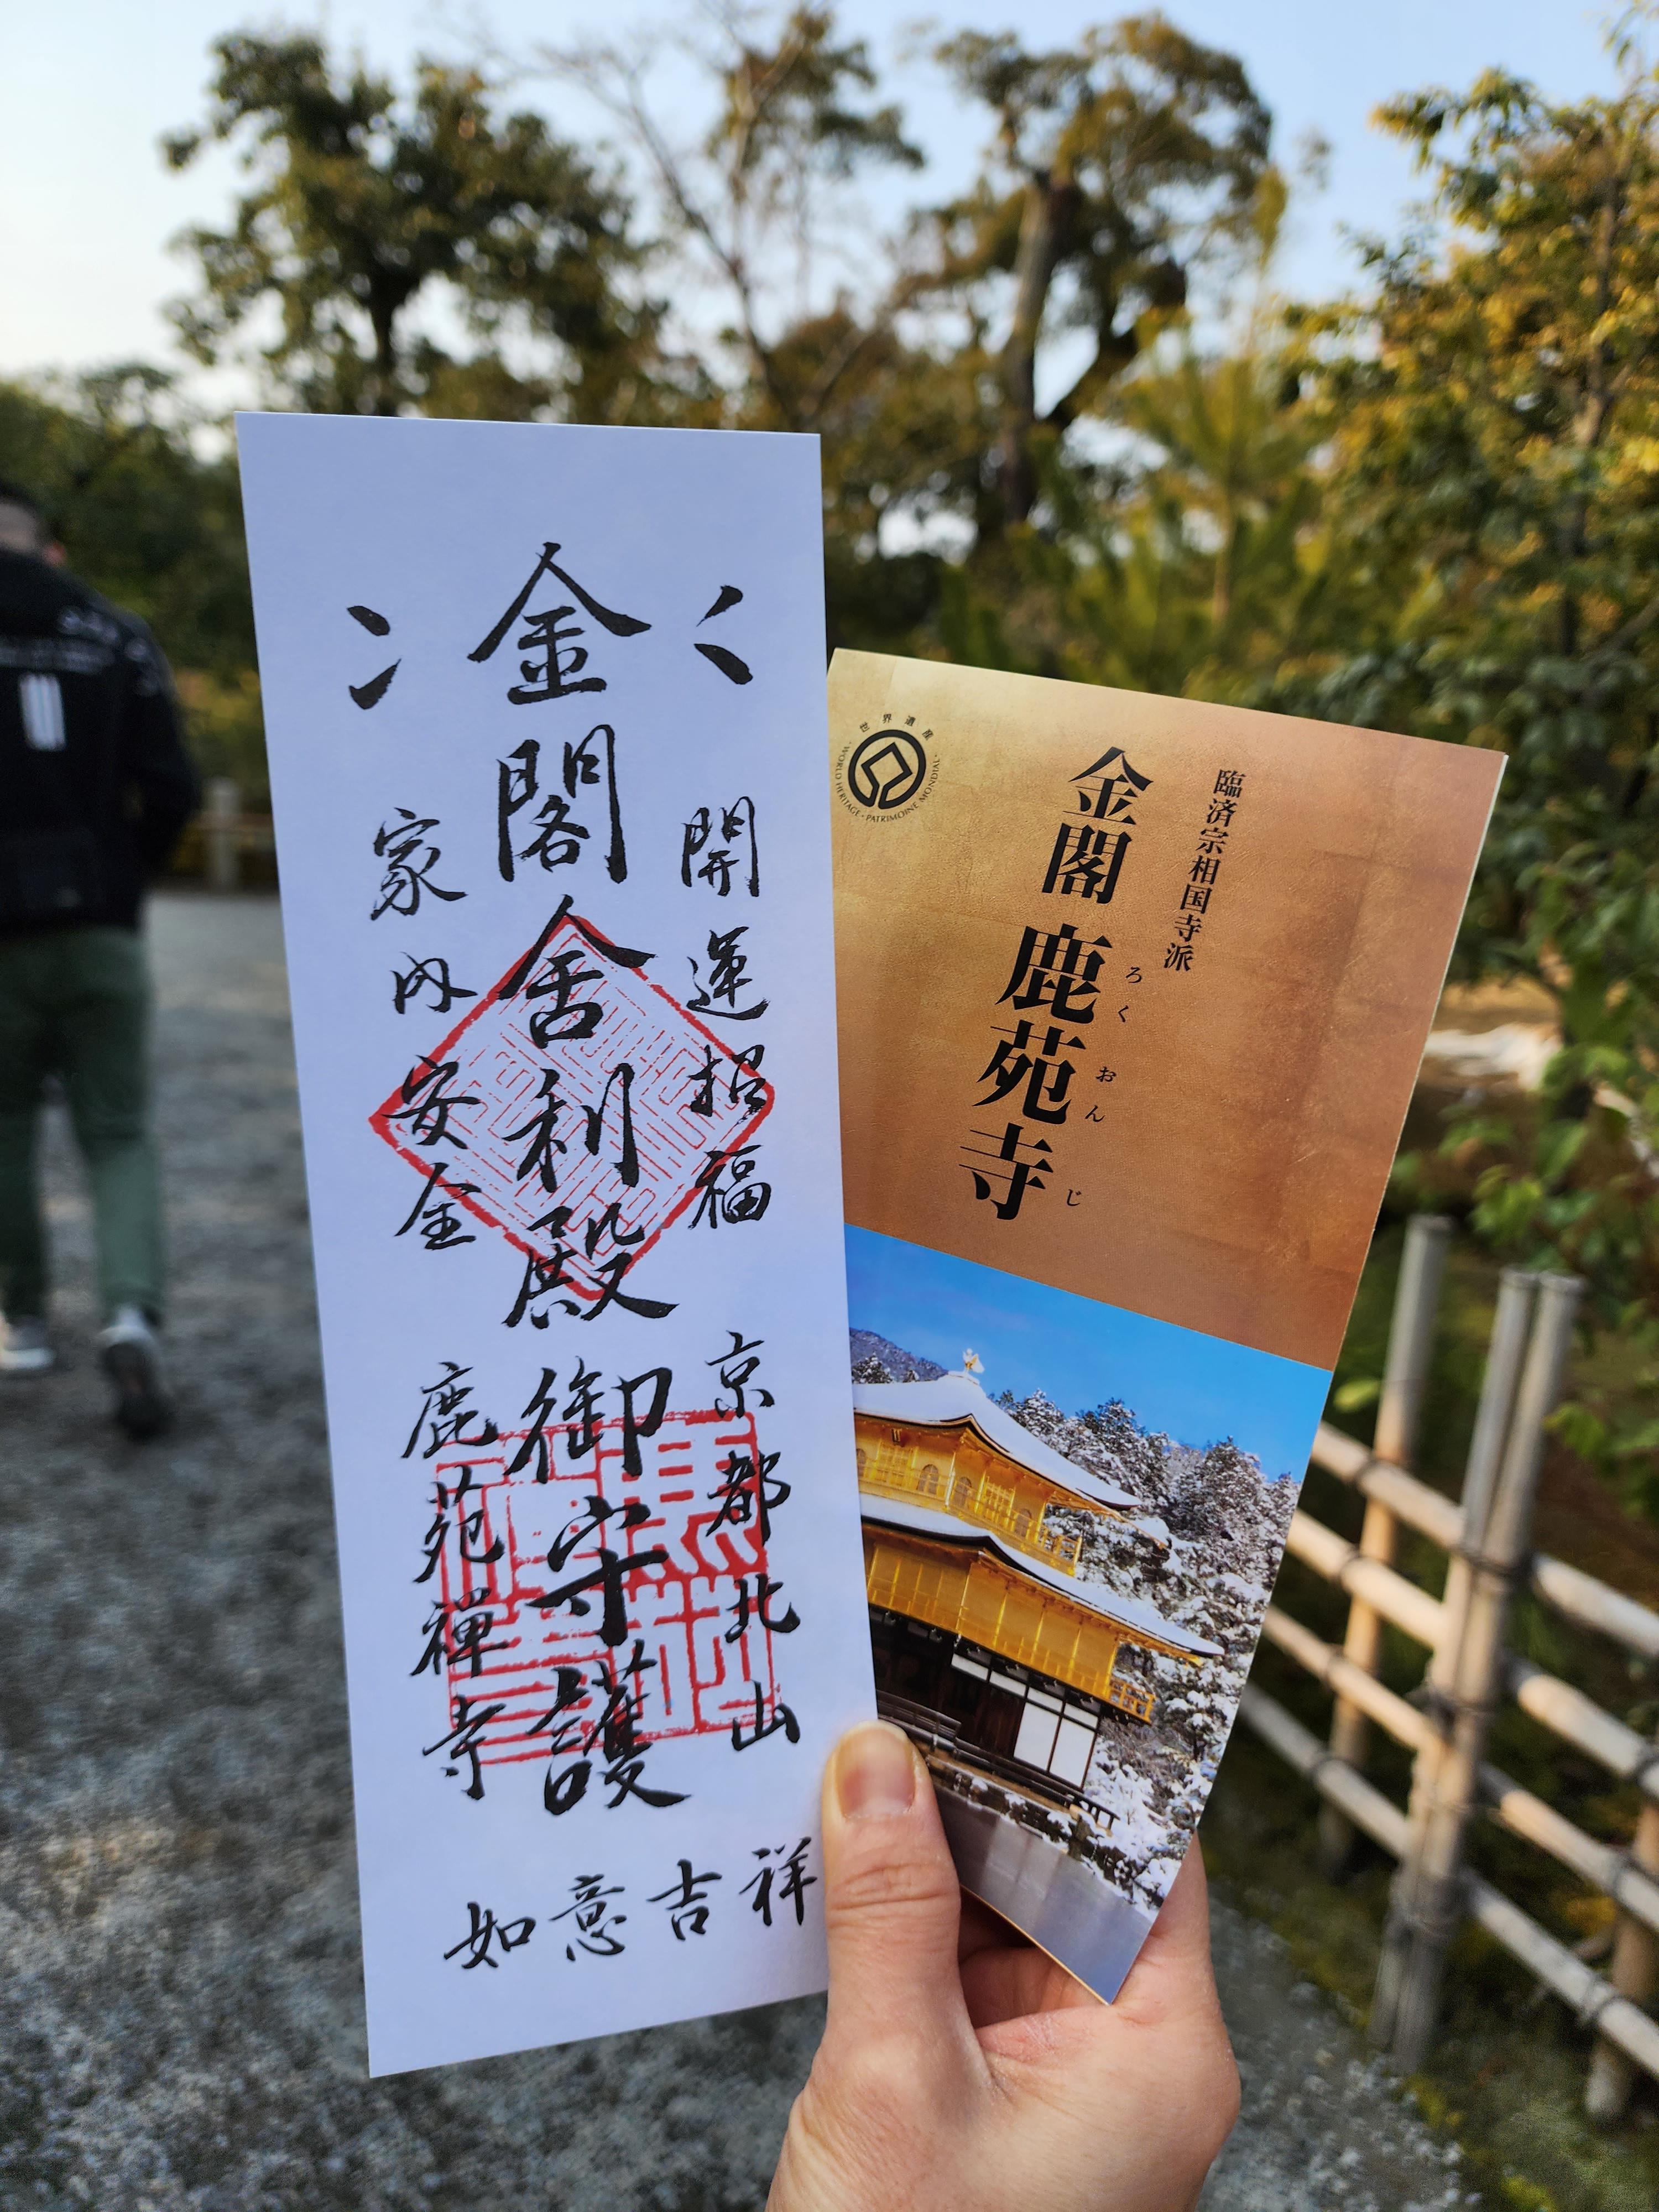 金閣舎利殿御守護
開運招福
家内安全
京都北山
鹿苑禅寺
如意吉祥
臨済宗相国寺派
金閣 鹿苑寺
ろく おん じ
世界遺産
WORLD HERITAGE · PATRIMOINE MONDIAL